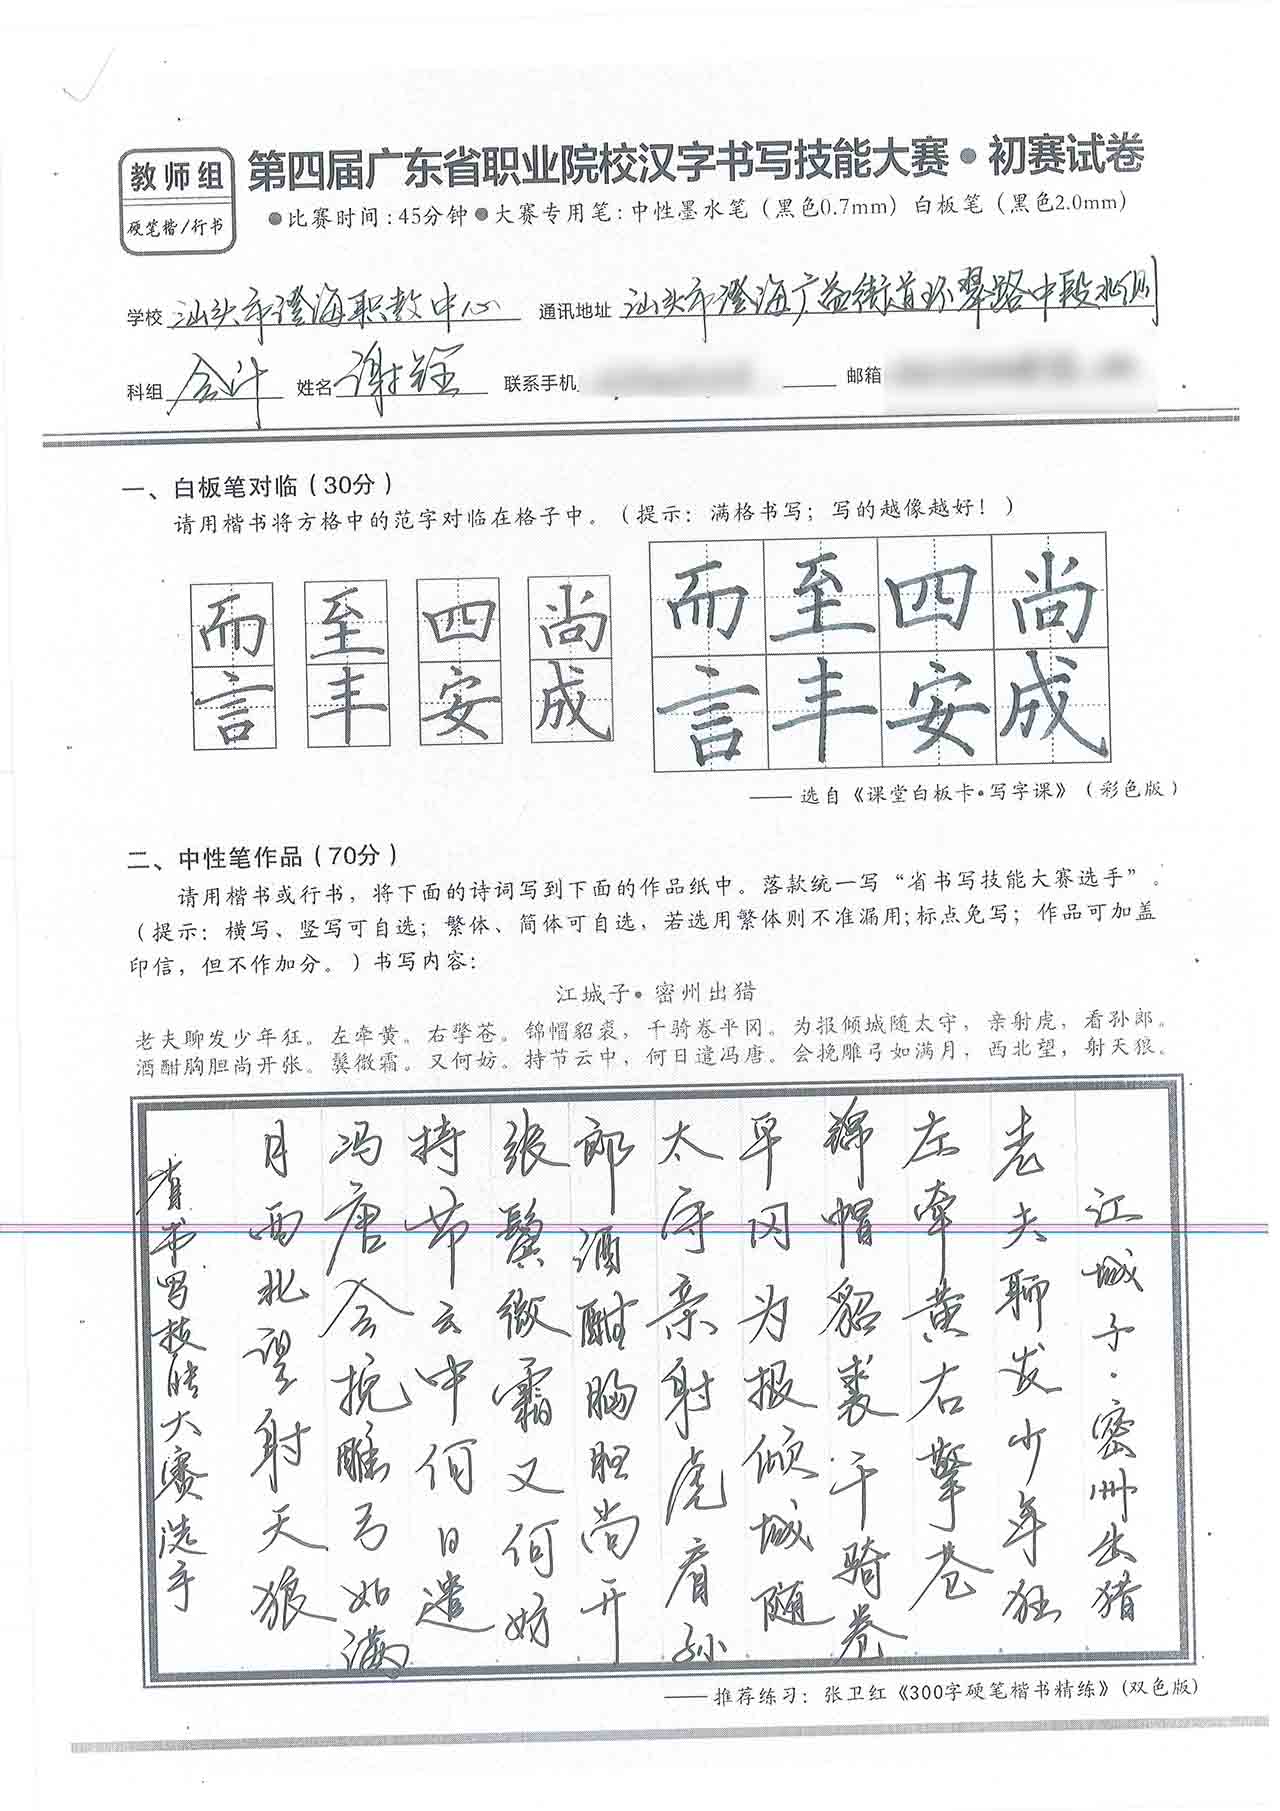 教师组
硬笔楷/行书
第四届广东省职业院校汉字书写技能大赛·初赛试卷
●比赛时间:45分钟●大赛专用笔:中性墨水笔（黑色0.7mm）白板笔（黑色2.0mm）
学校 汕头市澄海职教中心 通讯地址 汕头市澄海广益街道环翠路中段北侧
科组 会计 姓名 谢铚 联系手机 邮箱
一、白板笔对临（30分）
请用楷书将方格中的范字对临在格子中。（提示：满格书写；写的越像越好！）
而 至 四 尚 而 至 四 尚
言 丰 安 成 言 丰 安 成
——选自《课堂白板卡•写字课》（彩色版）
二、中性笔作品（70分）
请用楷书或行书，将下面的诗词写到下面的作品纸中。落款统一写“省书写技能大赛选手”。
（提示：横写、竖写可自选；繁体、简体可自选，若选用繁体则不准漏用;标点免写；作品可加盖
印信，但不作加分。）书写内容：
江城子•密州出猎
老夫聊发少年狂。左牵黄。右擎苍。锦帽貂裘，千骑卷平冈。为报倾城随太守，亲射虎，看孙郎。
酒酣胸胆尚开张。鬓微霜。又何妨。持节云中，何日遣冯唐。会挽雕弓如满月，西北望，射天狼。
江城子·密州出猎
老夫聊发少年狂
左牵黄右擎苍
锦帽貂裘千骑卷
平冈为报倾城随
太守亲射虎看孙
郎酒酣胸胆尚开
张鬓微霜又何妨
持节云中何日遣
冯唐会挽雕弓如满
月西北望射天狼
省书写技能大赛选手
——推荐练习：张卫红《300字硬笔楷书精练》(双色版)